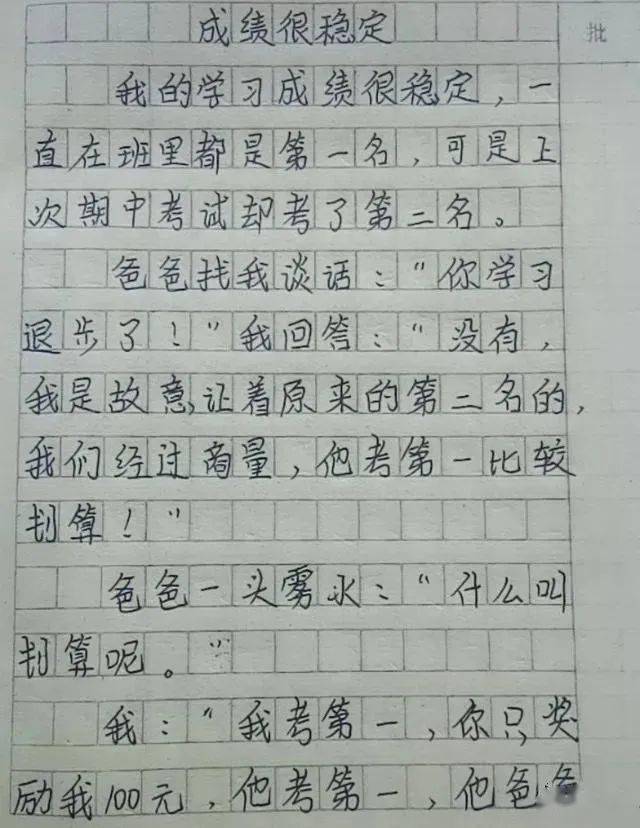 成绩很稳定
批
我的学习成绩很稳定，一
直在班里都是第一名，可是上
次期中考试却考了第二名。
爸爸找我谈话：“你学习
退步了！”我回答：“没有，
我是故意，让着原来的第二名的，
我们经过商量，他考第一比较
划算！”
爸爸一头雾水：“什么叫
划算呢。”
我：“我考第一，你只奖
励我100元，他考第一，他爸爸